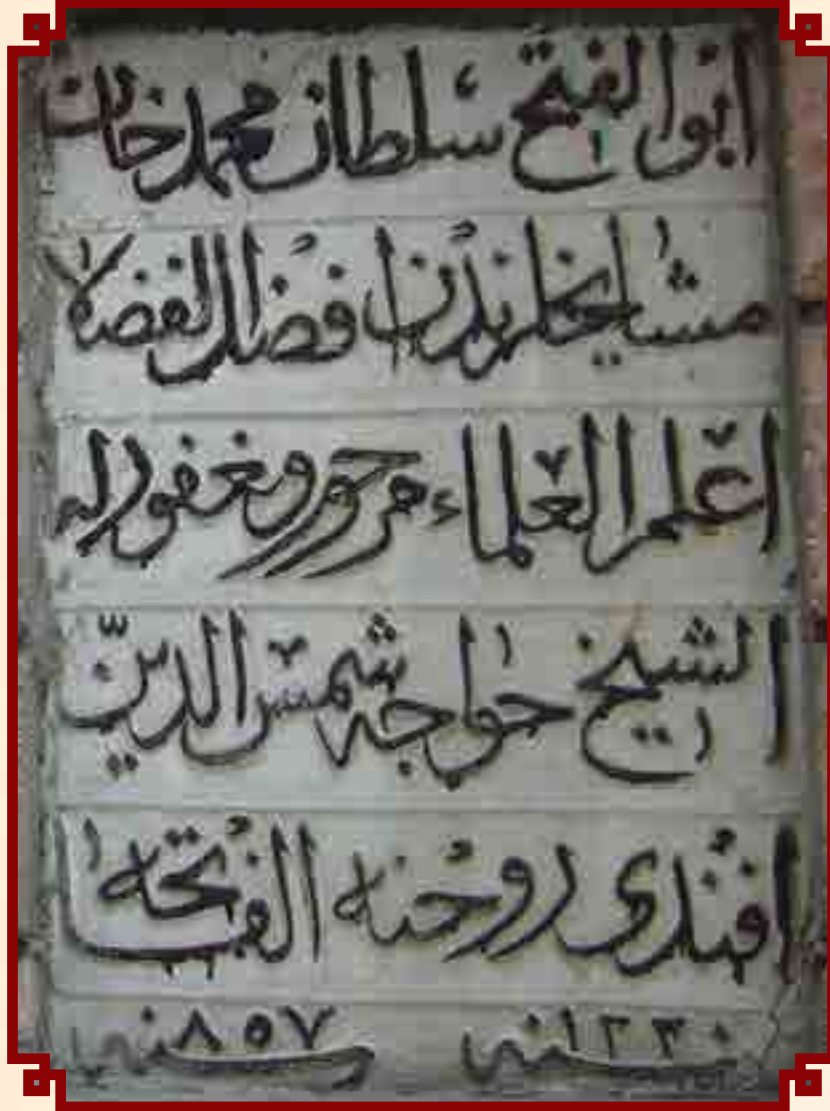 ابو الفتح سلطان محمد خان
مشايخلرندن افضل الفضلا
اعلم العلماء مرحوم و مغفور له
الشيخ خواجه شمس الدين
افندى روحنه الفاتحه
سنه ١٢٣٠ سنه ٨٥٧